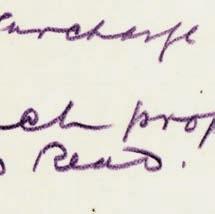 Surcharge
ach prop
o Read.